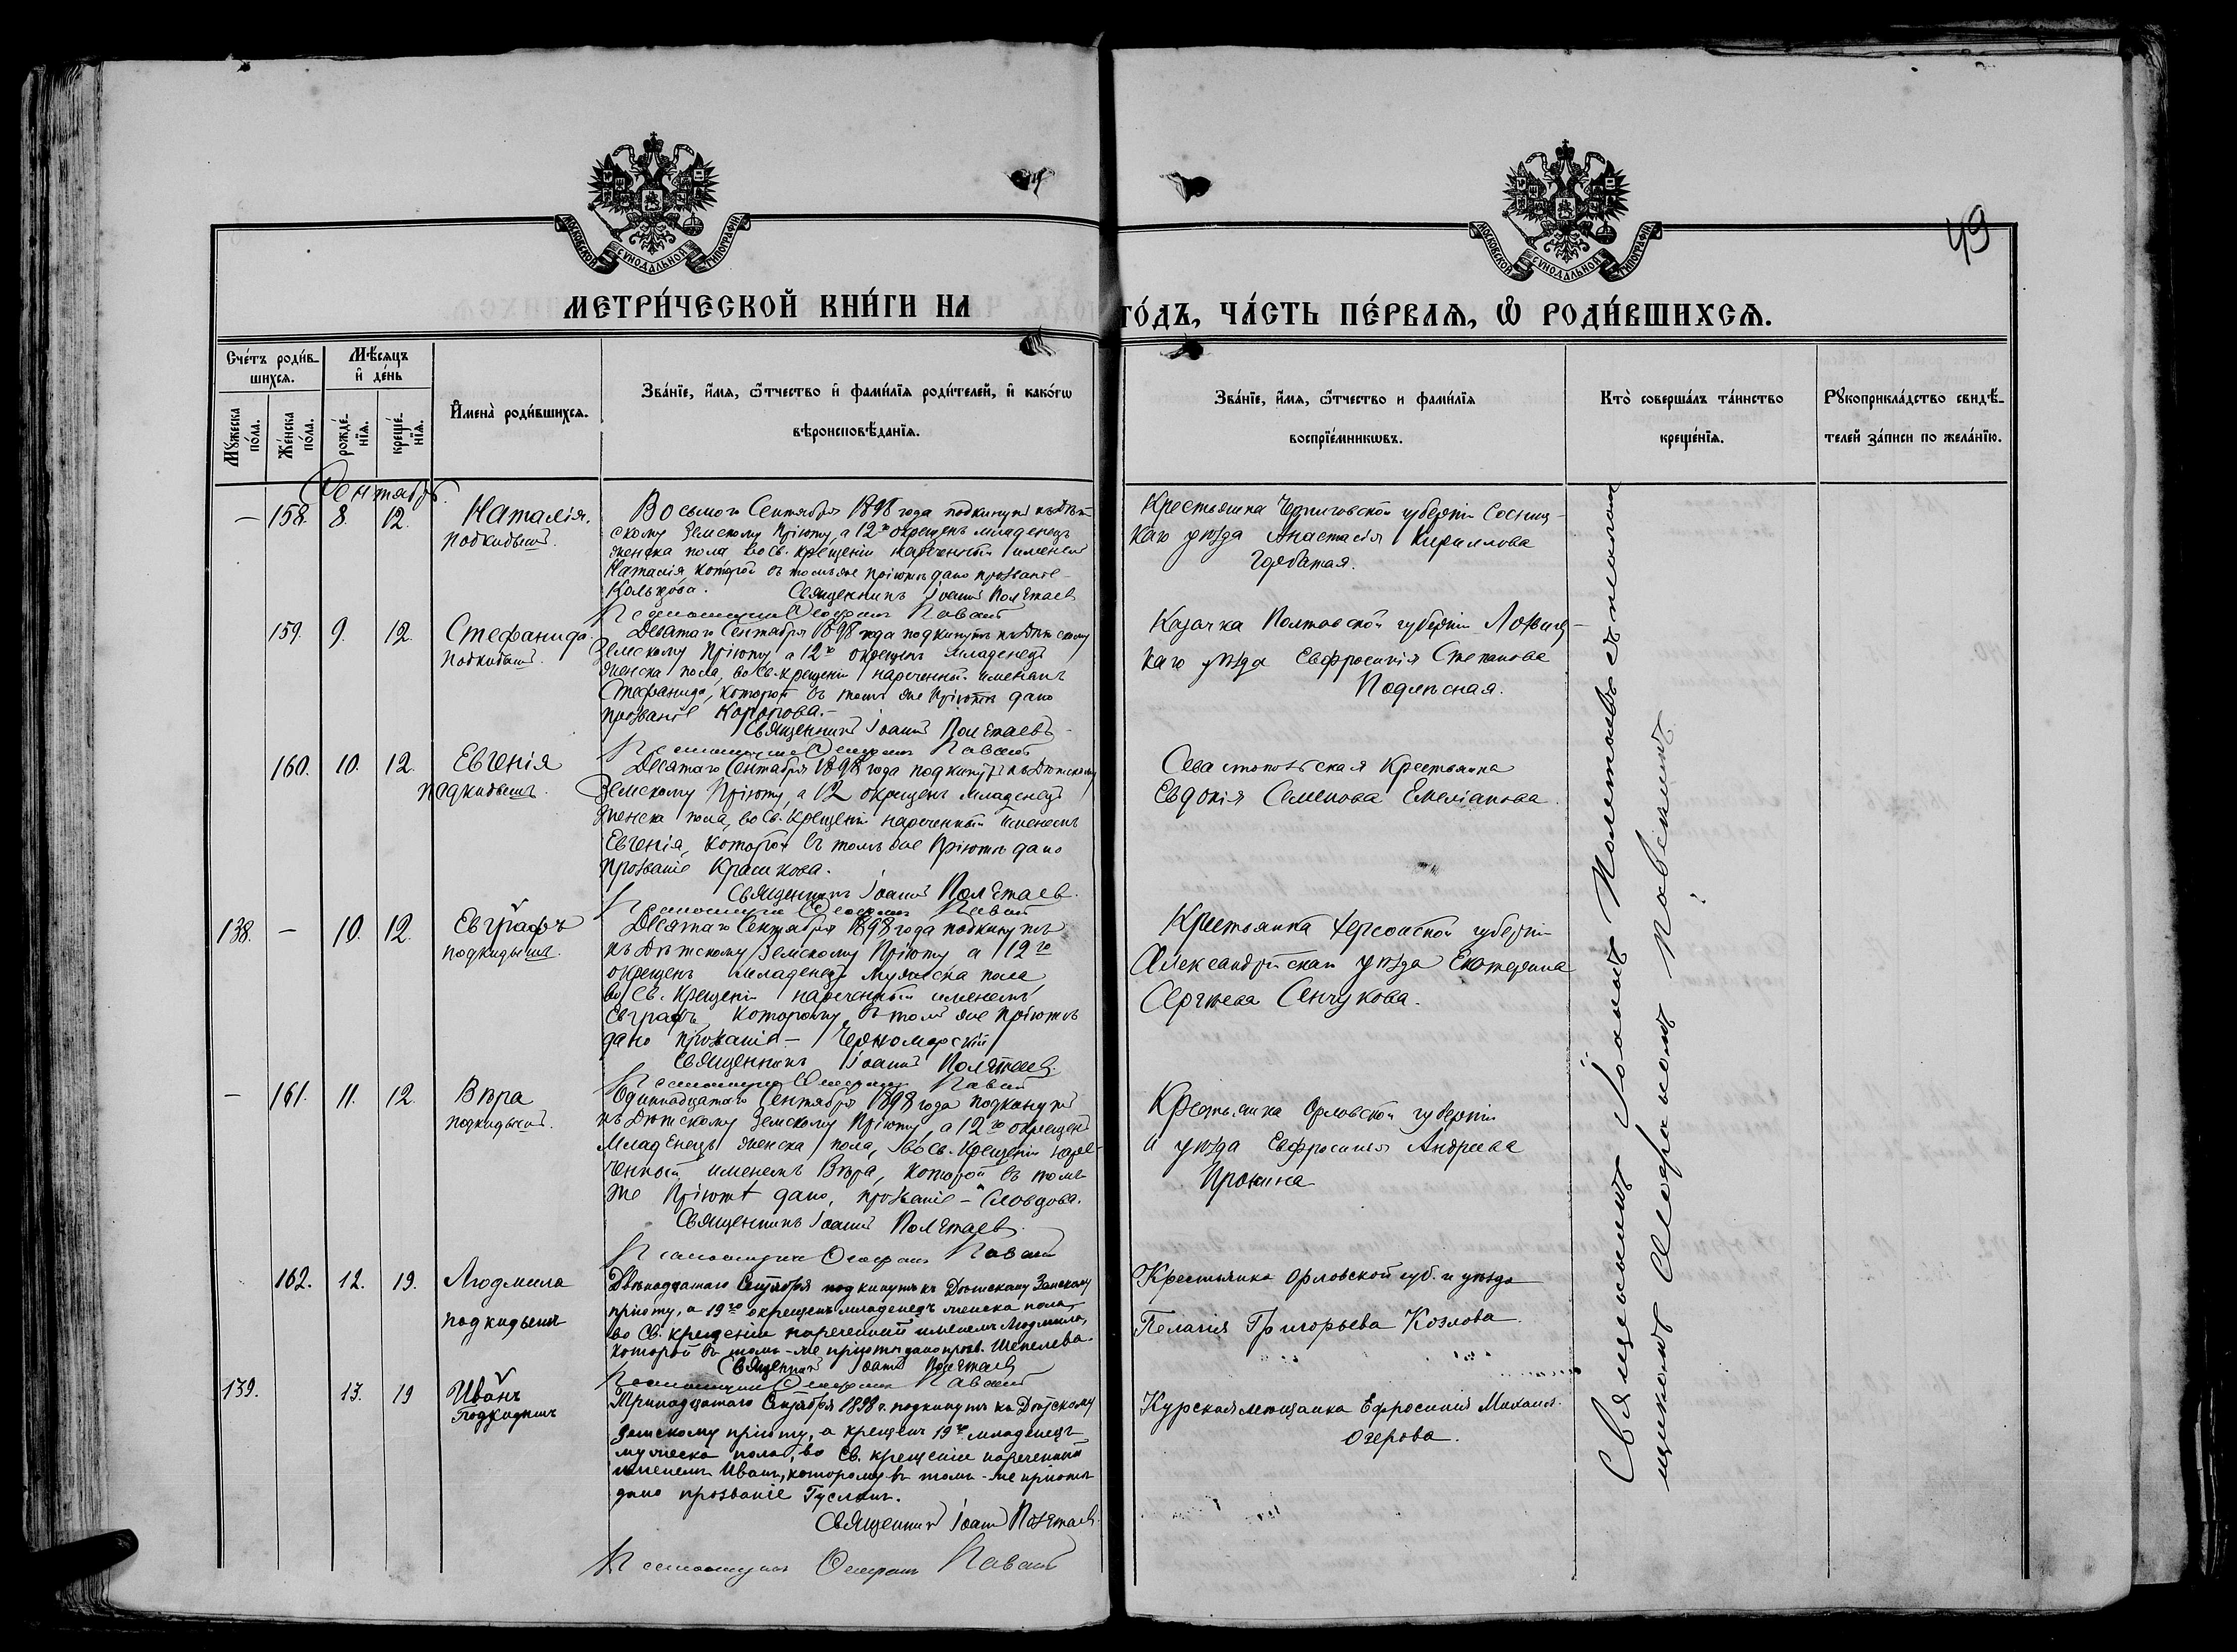 49
МОСКОВСКОЙ СУНОДАЛЬНОЙ ТИПОГРАФІИ
МОСКОВСКОЙ СУНОДАЛЬНОЙ ТИПОГРАФІИ
МЕТРИ́ЧЕСКОЙ КНИ́ГИ НА
ГО́ДЪ, ЧА́СТЬ ПЕ́РВАѦ, Ѿ РОДИ́ВШИХСѦ.
Сче́тъ роди́в-
шихсѧ.
Мѣ́сяцъ
и҆ де́нь
Мꙋ́жеска
по́ла.
Же́нска
по́ла.
рожде́-
нїѧ.
креще́-
нїѧ.
И҆мена̀ роди́вшихсѧ.
Зва́нїе, и҆́мѧ, ѻ҆́тчество и҆ фами́лїѧ роди́телей, и҆ како́гѡ
вѣроисповѣ́данїѧ.
Зва́нїе, и҆́мѧ, ѻ҆́тчество и фами́лїѧ
воспрїе́мникѡвъ.
Кто̀ соверша́лъ та́инство
креще́нїѧ.
Рꙋкоприкла́дство свидѣ́-
телей за́писи по жела́нїю.
Сентябрь.
— 158. 8. 12. Наталія.
подкидышъ.
Восьмого Сентября 1898 года подкинутъ къ Дѣт-
скому Земскому Пріюту, а 12го окрещенъ младенецъ
женска пола во св. крещеніи нареченный именемъ
Наталія, которой въ томъ же пріютѣ дано прозваніе
Кольцова. Священникъ Іоаннъ Полѣтаевъ
Крестьянка Черниговской губерніи Сосниц-
каго уѣзда Анастасія Кириллова
Горбатая.
159. 9. 12. Стефанида.
подкидышъ.
Девятаго Сентября 1898 года подкинутъ къ Дѣтскому
Земскому Пріюту а 12го окрещенъ младенецъ
женска пола, во св. крещеніи нареченный именемъ
Стефанида, которой въ томъ же Пріютѣ дано
прозваніе
Священникъ Іоаннъ Полѣтаевъ
Казачка Полтавской губерніи Лохвиц-
каго уѣзда Евфросинія Степанова
Подлѣсная.
160. 10. 12. Евгенія
подкидышъ.
Десятаго Сентября 1898 года подкинутъ къ Дѣтскому
Земскому Пріюту, а 12 окрещенъ младенецъ
женска пола, во св. крещеніи нареченный именемъ
Евгенія, которой въ томъ же Пріютѣ дано
прозваніе Красикова.
Священникъ Іоаннъ Полѣтаевъ.
Севастопольская крестьянка
Евдокія Семенова Емеліанова.
138. — 10. 12. Евграфъ
подкидышъ.
Десятаго Сентября 1898 года подкинутъ
къ Дѣтскому Земскому Пріюту а 12го
окрещенъ младенецъ мужеска пола
во св. крещеніи нареченный именемъ
Евграфъ, которому въ томъ же пріютѣ
дано прозваніе — Черноморскій
Священникъ Іоаннъ Полѣтаевъ.
Крестьянка Херсонской губерніи
Александрійскаго уѣзда Екатерина
Сергѣева Сенчукова.
— 161. 11. 12. Вѣра
подкидышъ.
Одиннадцатаго Сентября 1898 года подкинутъ
къ Дѣтскому Земскому Пріюту, а 12го окрещенъ
младенецъ женска пола, во св. крещеніи наре-
ченный именемъ Вѣра, которой въ томъ
же Пріютѣ дано, прозваніе — Словцова.
Священникъ Іоаннъ Полѣтаевъ.
Крестьянка Орловской губерніи
и уѣзда Евфросинія Андреева
Пронина
162. 12. 19. Людмила
подкидышъ
Двѣнадцатаго Сентября подкинутъ къ Дѣтскому Земскому
пріюту, а 19го окрещенъ младенецъ женска пола,
во Св. крещеніи нареченный именемъ Людмила,
которой въ томъ-же пріютѣ дано прозв. Шепелева.
Священникъ Іоаннъ Полѣтаевъ
Крестьянка Орловской губ. и уѣзда
Пелагія Григорьева Козлова.
139. 13. 19 Иванъ
Подкидышъ
Тринадцатаго Сентября 1898 г. подкинутъ къ Дѣтскому
Земскому пріюту, а крещенъ 19го младенецъ
мужеска пола, во Св. крещеніи нареченный
именемъ Иванъ, которому въ томъ-же пріютѣ
дано прозваніе Гуслинъ.
Священникъ Іоаннъ Полѣтаевъ.
Курская мѣщанка Ефросинія Михаил.
Озерова.
Священникъ Іоаннъ Полетаевъ съ псалом-
щикомъ